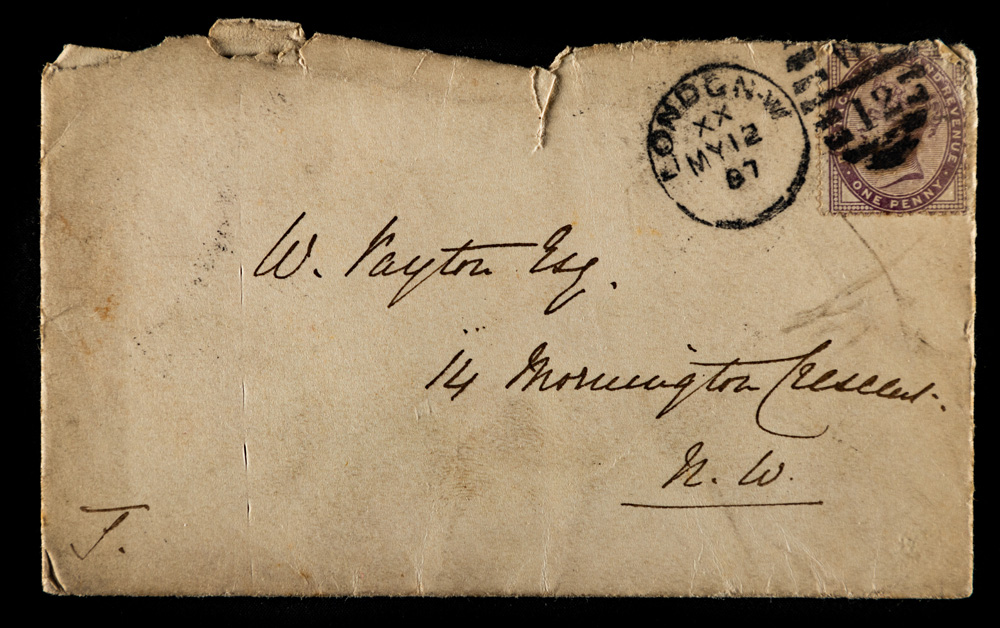 LONDON·W
XX
MY 12
87
W
12
REVENUE
ONE PENNY
W. Payton Esq.
14 Mornington Crescent.
N. W.
J.